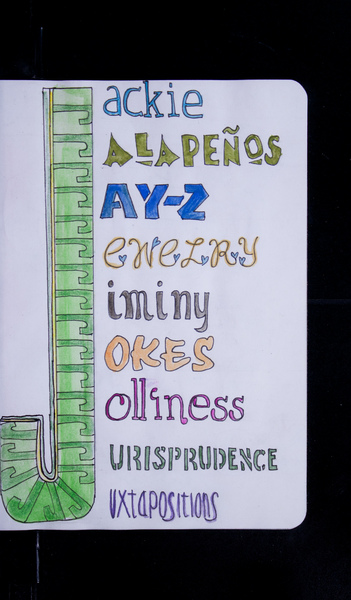 J
ackie
ALAPEÑOS
AY-Z
EWELRY
iminy
OKES
olliness
URISPRUDENCE
UXTAPOSITIONS